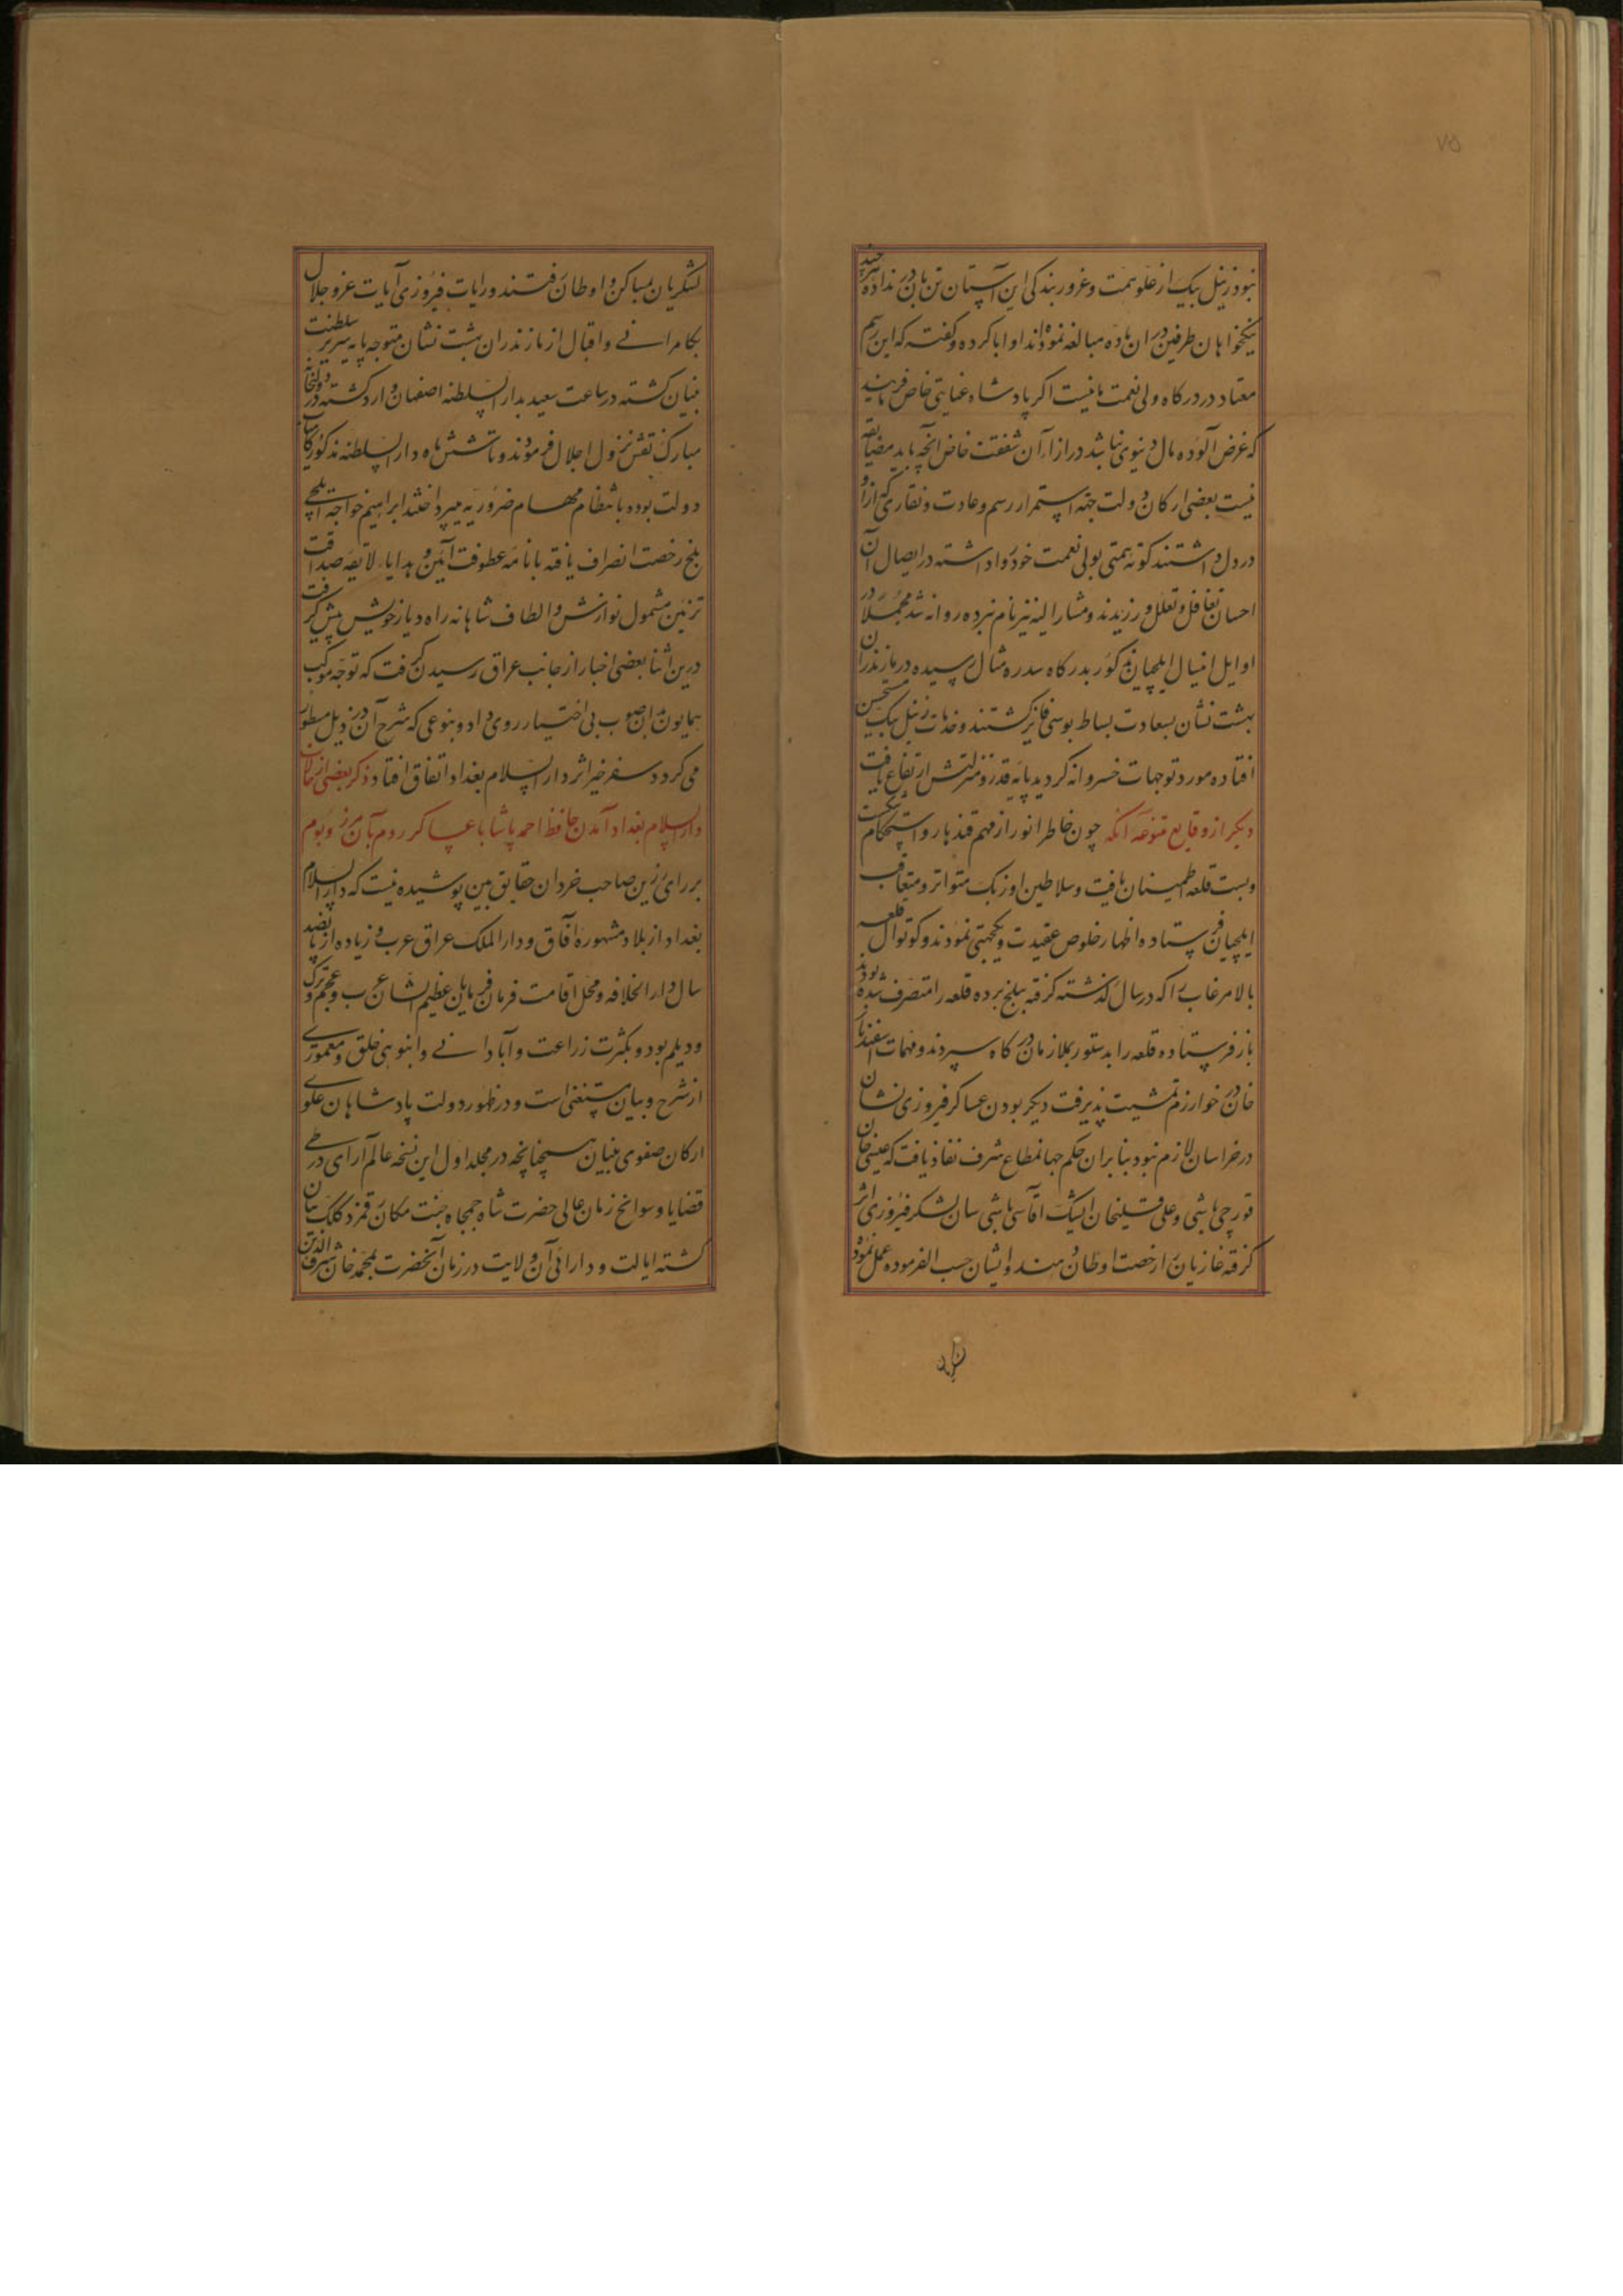 ۷۵
نبود زینل بیک از علو همت و غرور بندکی این آستان تن بان در نداده هر چند
نیکخواهان طرفین در ان ماده مبالغه نموده‌اند او ابا کرده و گفته که این رسم
معتاد در درکاه ولی نعمت ما نیست اکر پادشاه عنایتی خاص فرمایند
که غرض آلوده مال دنیوی نباشد در ازاء آن شفقت خاص آنچه باید مضایقه
نیست بعضی ارکان دولت جهه استمرار رسم و عادت و نقاری که از او
در دل داشتند کوته همتی بولی نعمت خود روا داشته در ایصال آن
احسان تغافل و تعلل ورزیدند و مشار الیه نیز نام نبرده روانه شد مجملا در
اوایل این سال ایلچیان مذکور بدرکاه سدره مثال رسیده در مازندران
بهشت نشان بسعادت بساط بوسی فایز کشتند و خدمات زینل بیک مستحسن
افتاده مورد توجهات خسروانه کردید پایه قدر و منزلتش ارتفاع یافت
دیکر از وقایع متنوعه آنکه چون خاطر انور از مهم قندهار و استحکام
و بست قلعه اطمینان یافت و سلاطین اوزبک متواتر و متعاقب
ایلچیان فرستاده اظهار خلوص عقیدت و یکجهتی نمودند و کوتوال قلعه
بالا مرغاب را که در سال گذشته کرفته ببلخ برده قلعه را متصرف شده بودند
باز فرستاده قلعه را بدستور بملازمان درکاه سپردند و مهمات اسفندیار
خان در خوارزم تمشیت پذیرفت دیکر بودن عساکر فیروزی نشان
در خراسان لازم نبود بنابران حکم جهانمطاع شرف نفاذ یافت که عیسی خان
قورچی باشی و علی قلیخان ایشیک اقاسی باشی سان لشکر فیروزی اثر
کرفته غازیان را رخصت اوطان دهند و ایشان حسب الفرموده عمل نموده
لشکریان
لشکریان بمساکن و اوطان رفتند و رایات فیروزی آیات عز و جلال
بکامرانی و اقبال از مازندران بهشت نشان متوجه پایه سریر سلطنت
بنیان کشته در ساعت سعید بدار السلطنه اصفهان وارد کشته در دولتخانه
مبارک نقش نزول اجلال فرمودند و تا شش ماه دار السلطنه مذکور
دولت بوده بانتظام مهام ضروریه میپرداختند ابراهیم خواجه ایلچی
بلخ رخصت انصراف یافته با نامه عطوفت آئین و هدایاء لایقه صداقت
تزئین مشمول نوازش و الطاف شاهانه راه دیار خویش پیش کرفت
درین اثنا بعضی اخبار از جانب عراق رسیدن کرفت که توجه موکب
همایون بدان صوب بی اختیار روی داد و بنوعی که شرح آن در ذیل مسطور
می کردد سفر خیر اثر دار السلام بغداد اتفاق افتاد ذکر بعضی از حالات
دار السلام بغداد و آمدن حافظ احمد پاشا با عساکر روم بآن مرز و بوم
بر رای رزین صاحب خردان حقایق بین پوشیده نیست که دار السلام
بغداد از بلاد مشهوره آفاق و دار الملک عراق عرب و زیاده از پانصد
سال دار الخلافه و محل اقامت فرمان فرمایان عظیم الشان عرب و عجم و ترک
و دیلم بود و بکثرت زراعت و آبادانی و انبوهی خلق و معموری
از شرح و بیان مستغنی است و در ظهور دولت پادشاهان علوی
ارکان صفوی بنیان هم چنانچه در مجلد اول این نسخه عالم آرای در طی
قضایا و سوانح زمان عالی حضرت شاه جمجاه جنت مکان رقمزد کلک بیان
کشته ایالت و دارائی آن ولایت در زمان آنحضرت بمحمد خان شرف الدین